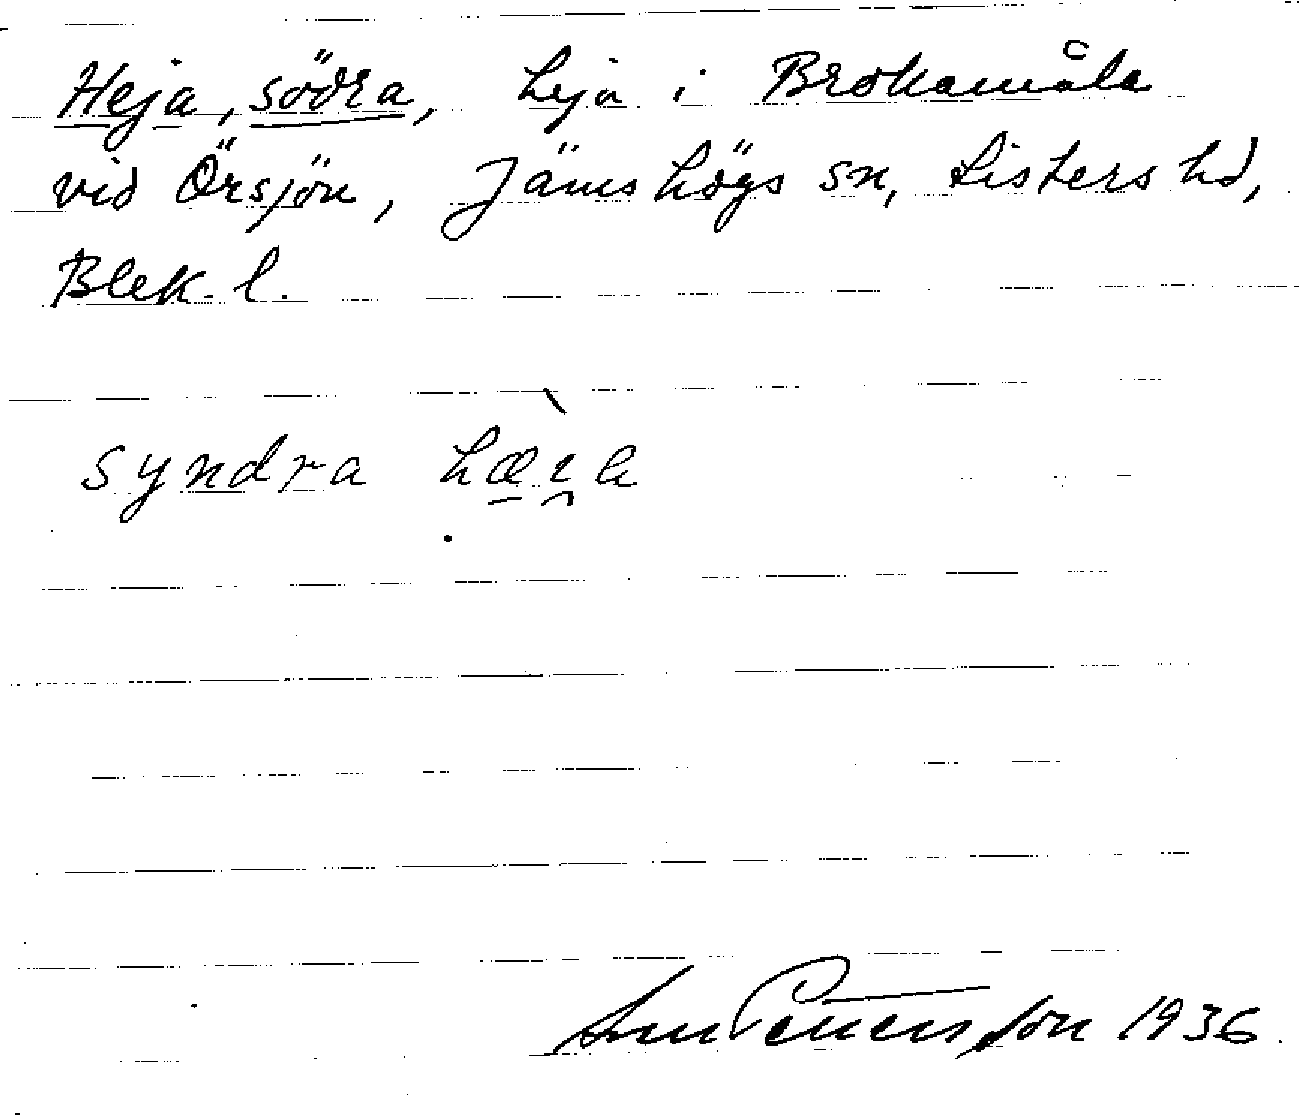 Heja, södra, heja i Brokamåla
vid Örsjön, Jämshögs sn, Listers hd,
Blek. l.
syndra
Pettersson 1936